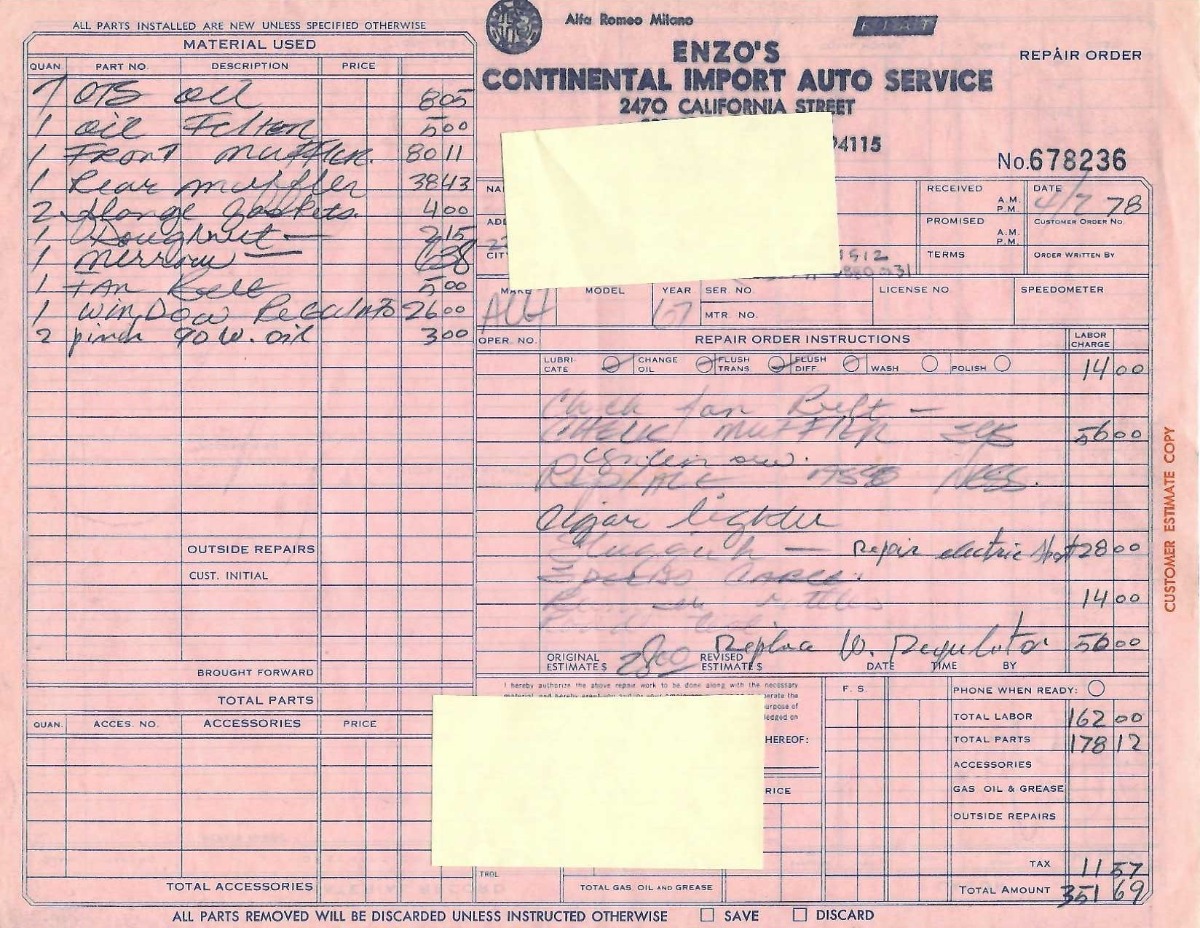 ALL PARTS INSTALLED ARE NEW UNLESS SPECIFIED OTHERWISE
MATERIAL USED
QUAN. PART NO. DESCRIPTION PRICE
7 QTS oil 805
1 oil Filter 500
1 Front muffler. 8011
1 Rear muffler 3843
2 flange gaskets. 400
1 Doughnut — 215
1 mirror — 638
1 FAN Belt 500
1 WINDOW Regulator 2600
2 90 W. oil 300
OUTSIDE REPAIRS
CUST. INITIAL
BROUGHT FORWARD
TOTAL PARTS
QUAN. ACCES. NO. ACCESSORIES PRICE
TOTAL ACCESSORIES
Alfa Romeo Milano
ENZO'S
CONTINENTAL IMPORT AUTO SERVICE
2470 CALIFORNIA STREET
94115
REPAIR ORDER
No. 678236
RECEIVED A.M. P.M. DATE 4/7 78
PROMISED A.M. P.M. CUSTOMER ORDER NO.
CITY TERMS ORDER WRITTEN BY
MAKE MODEL YEAR SER. NO. LICENSE NO. SPEEDOMETER
67 MTR. NO.
OPER. NO. REPAIR ORDER INSTRUCTIONS LABOR CHARGE
LUBRICATE CHANGE OIL FLUSH TRANS. FLUSH DIFF. WASH POLISH 1400
Check fan Belt —
CHECK MUFFLER 5600
REPLACE
cigar lighter
Sluggish — Repair electric short 2800
1400
Replace W. Regulator 5600
ORIGINAL ESTIMATE $ 2800 REVISED ESTIMATE $ DATE TIME BY
I hereby authorize the above repair work to be done along with the necessary
HEREOF:
F. S. PHONE WHEN READY:
TOTAL LABOR 16200
TOTAL PARTS 17812
ACCESSORIES
GAS, OIL & GREASE
OUTSIDE REPAIRS
TAX 1157
TOTAL GAS, OIL AND GREASE TOTAL AMOUNT 351 69
ALL PARTS REMOVED WILL BE DISCARDED UNLESS INSTRUCTED OTHERWISE SAVE DISCARD
CUSTOMER ESTIMATE COPY